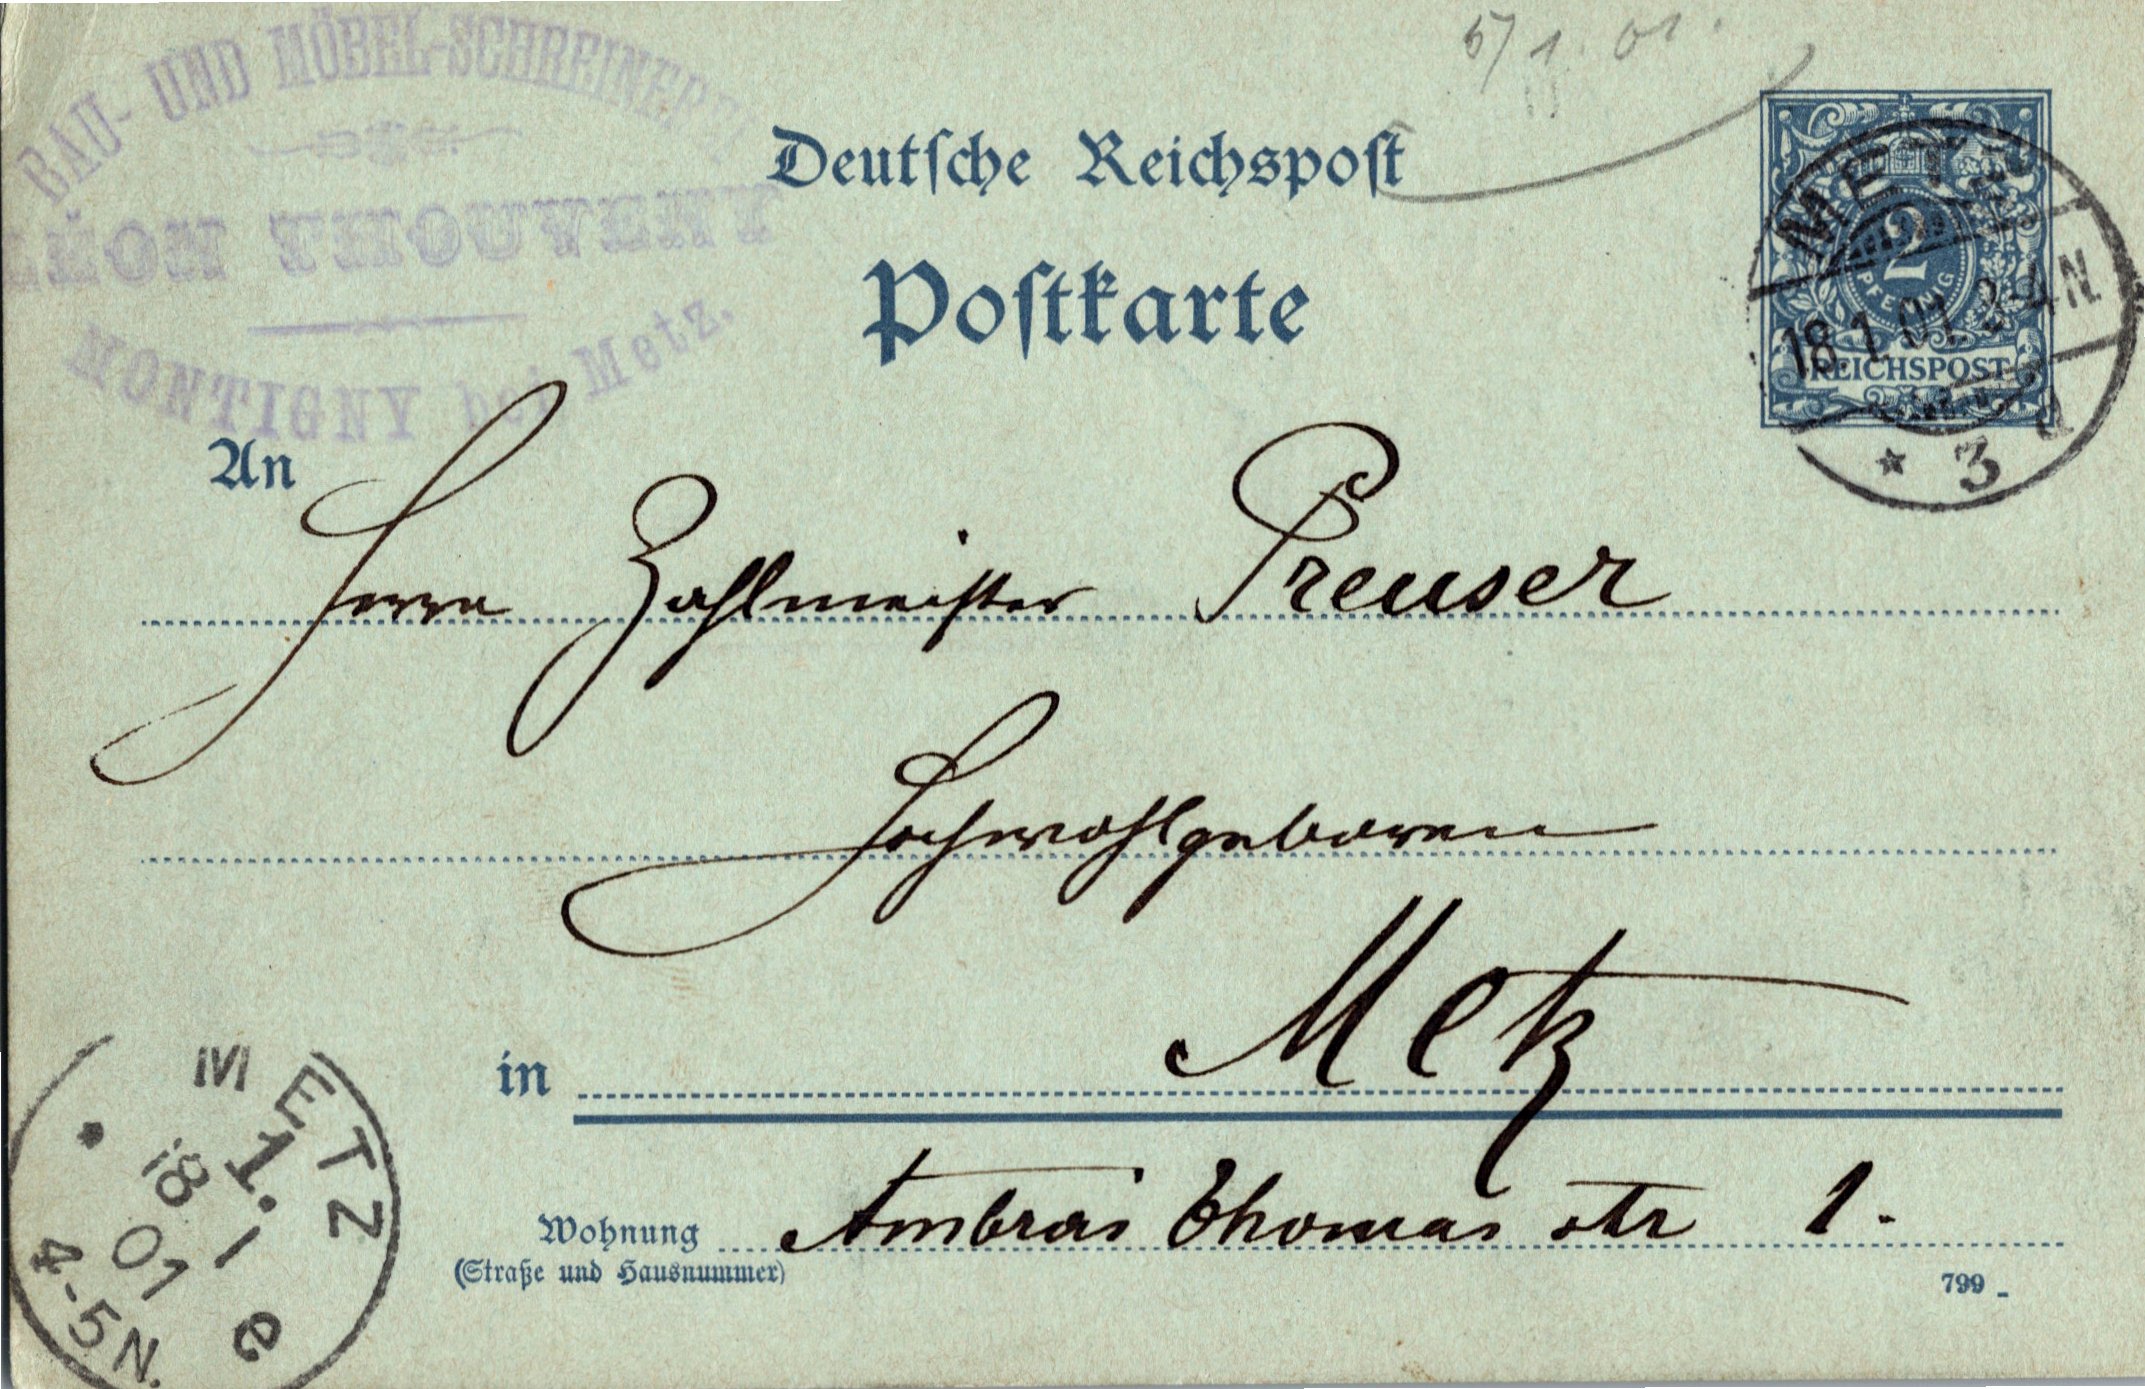 BAU- UND MÖBEL-SCHREINEREI
LÉON THOUVENY
MONTIGNY bei Metz.
5/1. 01.
Deutsche Reichspost
Postkarte
2
PFENNIG
REICHSPOST
METZ
18.1.01. 3-4N.
* 3 d
An
Herrn Zahlmeister Preuser
Hochwohlgeboren
in Metz
Wohnung Ambrois Thomas str 1.
(Straße und Hausnummer)
799
METZ
1.
18 1
01
4-5N.
e